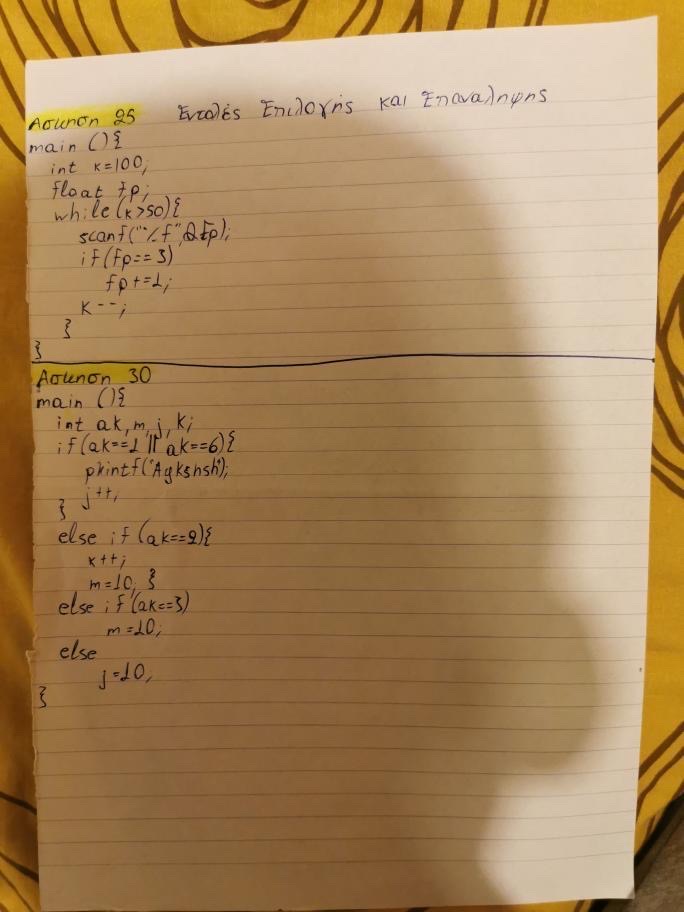 Άσκηση 25 Εντολές Επιλογής και Επανάληψης
main (){
int k=100;
float fp;
while(k>50){
scanf("%f",&fp);
if(fp==3)
fp+=1;
k--;
}
}
Άσκηση 30
main (){
int ak,m,j,k;
if(ak==1 || ak==6){
printf("Agkshsh");
j++;
}
else if (ak==2){
k++;
m=10; }
else if (ak==3)
m=10;
else
j=10;
}